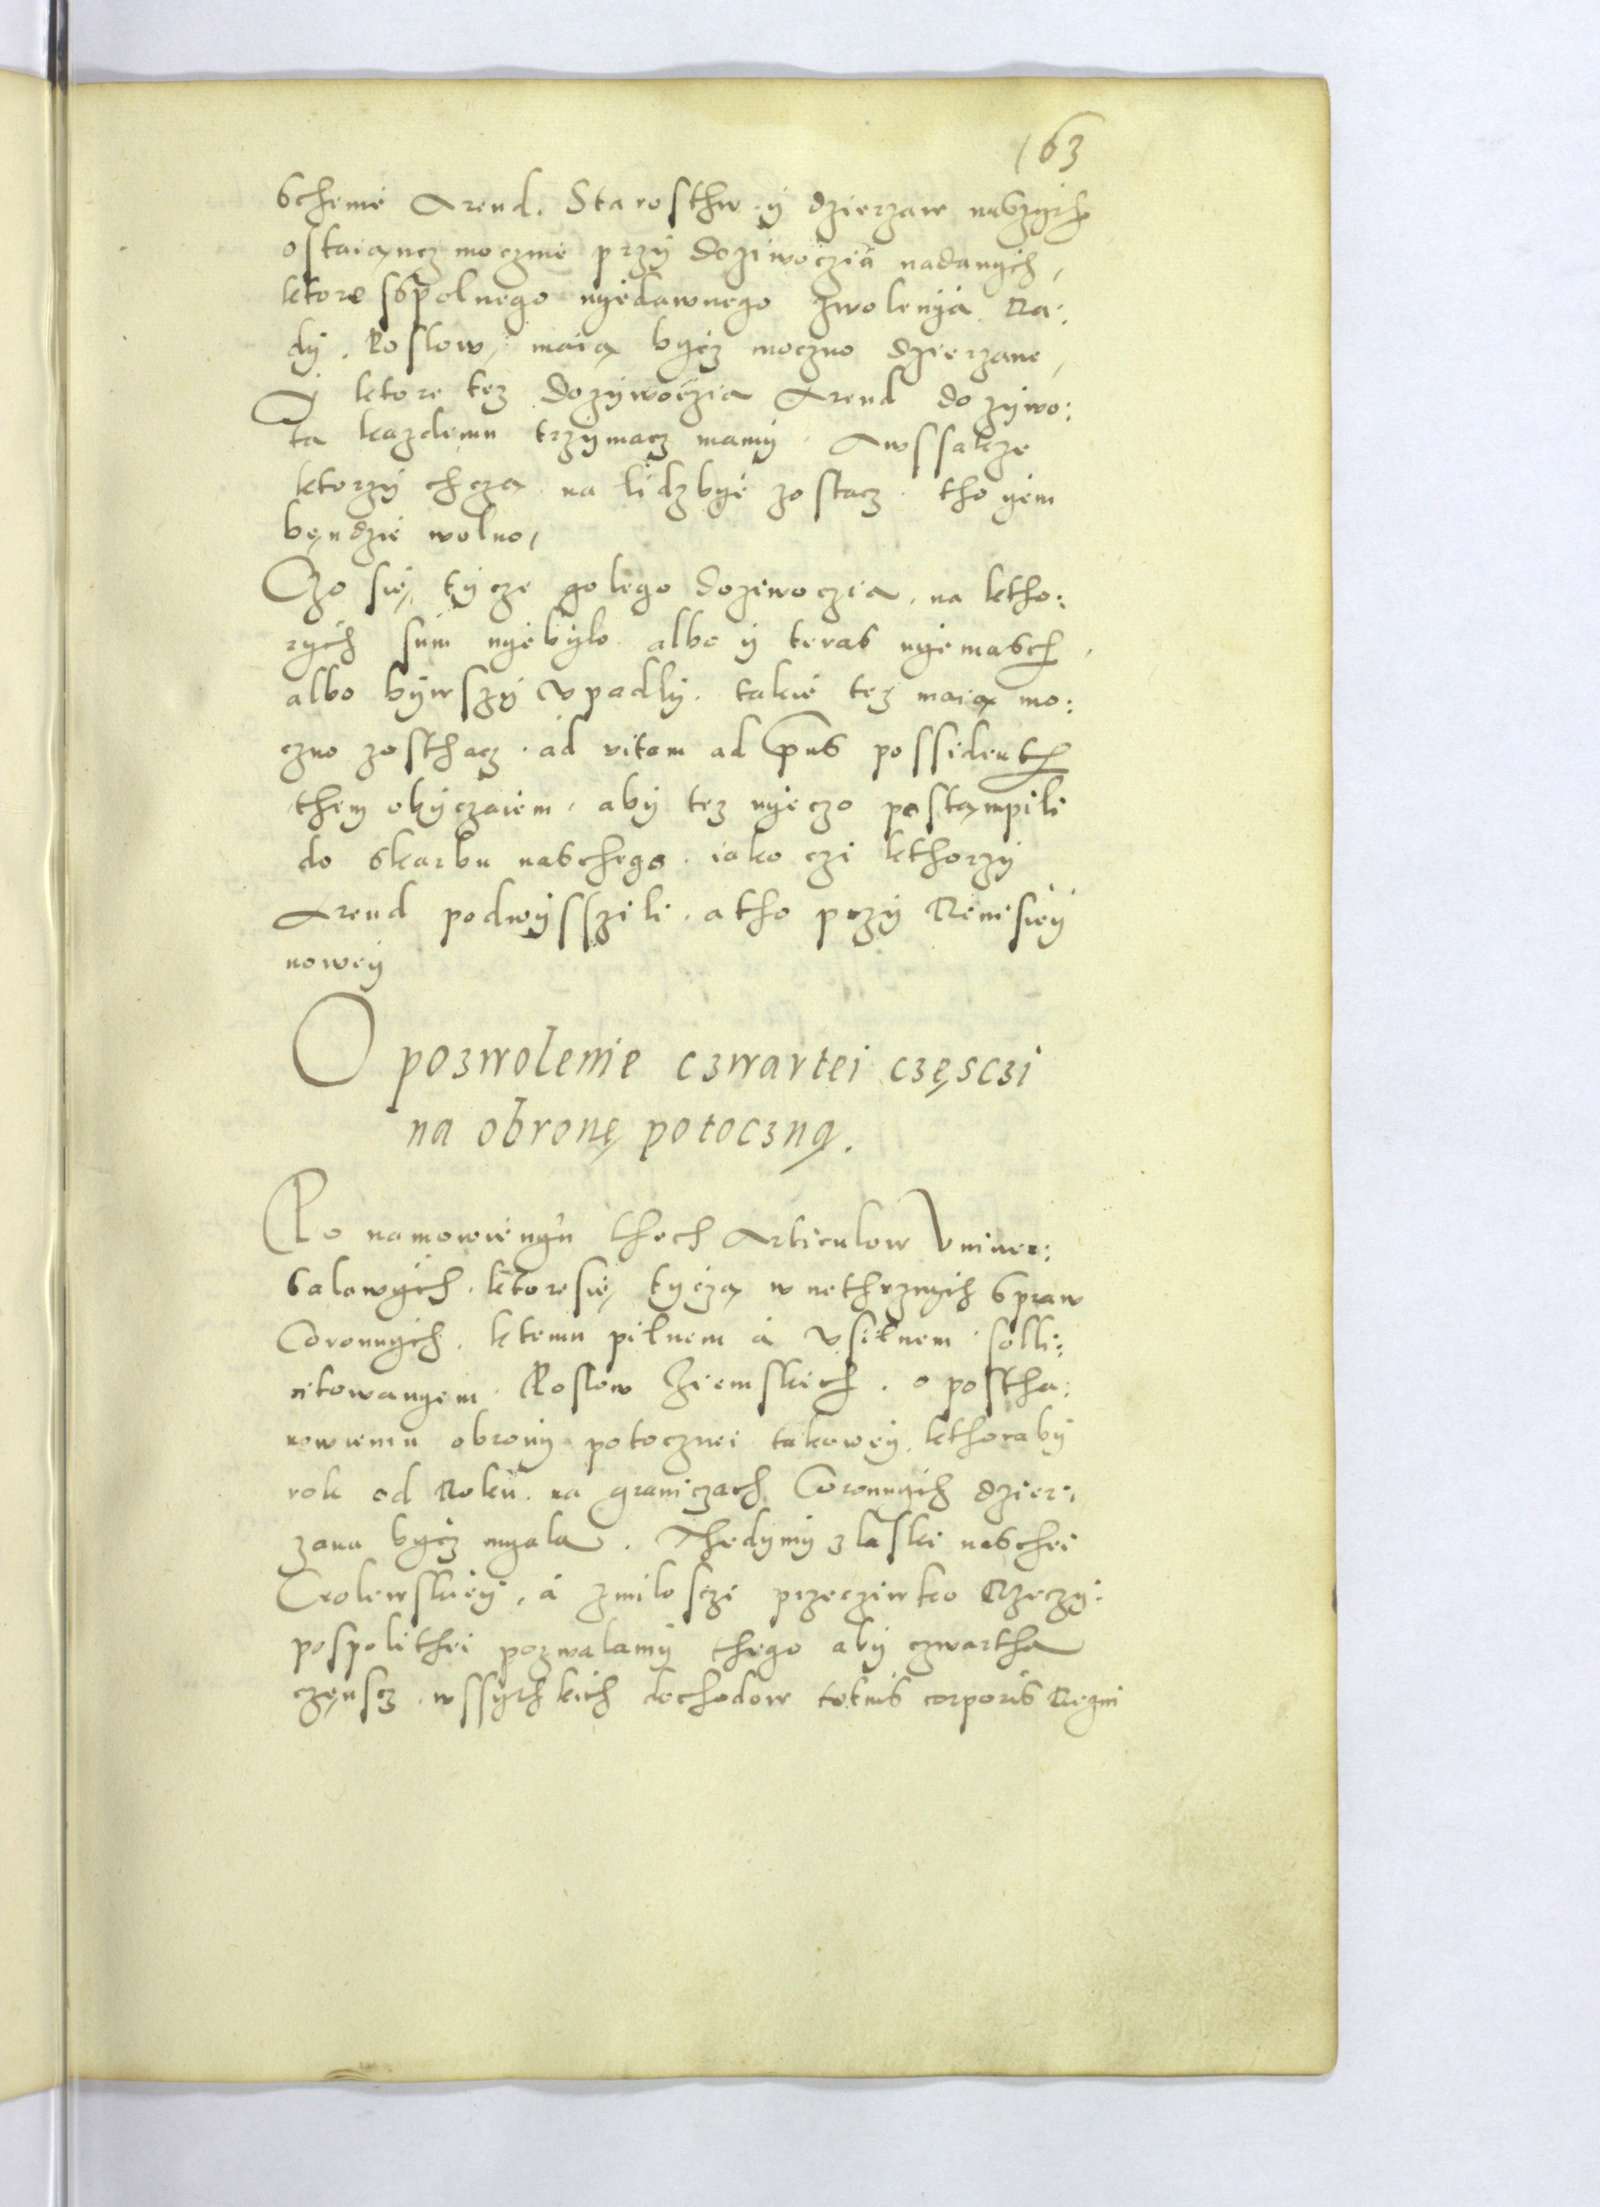 163
scheme Arend. Starosthw y dzierzaw naszych
ostaiąncz moczme przy doziwoczia nadanych,
ktore spolnego nyedawnego zwolenya Ra:
dy. Poslow, maią bycz moczno dzierzane,
Y ktore tez dozywoczia Arend do zywo:
ta kazdemu trzymacz mamy. Awssakze
ktorzy chcza na lidzbye zostacz. tho yem
bęndzie wolno,
Czo się, tycze golego doziwoczia, na ktho:
rych sum nyebylo albo y teras nyemasch,
albo bywszy vpadly. takie tez maią mo:
czno zosthacz. ad vitam ad pns possident
them obyczaiem, aby tez nyeczo postąmpili
do skarbu naschego. iako czi kthorzy
Arend podwysszili. atho przy Remisiey
nowey
O pozwolenie czwartei częsczi
na obronę potoczną.
Po namowienyu thech Articulow Vniuer:
salowych. ktoresię, tycżą wnethrznych spraw
Coronnych. ktemu pilnem a vsilnem solli:
citowanyem. Poslow Ziemskich. o postha:
nowieniu obrony potocznei takowey, kthoraby
rok od Roku na graniczach Coronnych dzier:
zana bycz myala. Thedymy z laski naschei
Crolewskiey, a zmilosczi przecziwko Rzeczy:
pospolithei pozwalamy thego aby czwartha
częnscz wssythkich dochodow totius corporis Regni